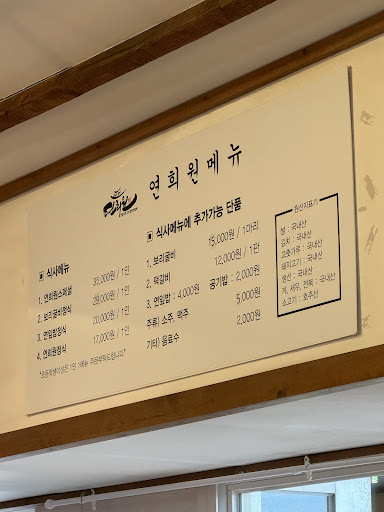 연희원
연희원메뉴
▣ 식사메뉴
1. 연희원스페셜 35,000원 / 1인
2. 보리굴비정식 28,000원 / 1인
3. 연잎밥정식 20,000원 / 1인
4. 연희원정식 17,000원 / 1인
"초등학생이상은 1인 1메뉴 주문부탁드립니다"
▣ 식사메뉴에 추가가능 단품
1. 보리굴비 15,000원 / 1마리
2. 떡갈비 12,000원 / 1판
3. 연잎밥 : 4,000원 공기밥 : 2,000원
주류) 소주, 맥주 5,000원
기타) 음료수 2,000원
원산지표기
쌀 : 국내산
김치 : 국내산
고춧가루 : 국내산
돼지고기 : 국내산
생선 : 국내산
게, 새우, 전복 : 국내산
소고기 : 호주산